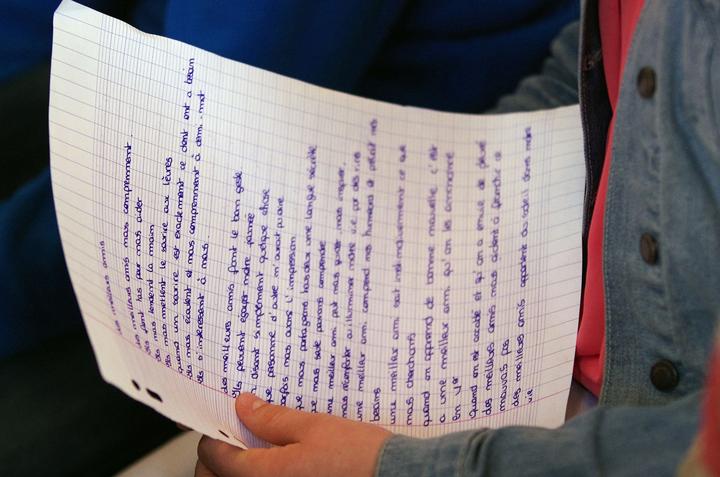 Les meilleurs amis
Les meilleurs amis nous comprennent.
Ils font pour nous aider
Ils nous tendent la main
Ils nous mettent le sourire aux lèvres
quand un sourire est exactement ce dont ont a besoin
Ils nous écoutent et nous comprennent à demi-mot
Ils s'intéressent à nous.
Les meilleurs amis font le bon geste
Ils peuvent égayer notre journée
En disant simplement quelque chose
que personne d'autre n'aurait pu
Parfois nous avons l'impression
que nous partageons tous deux une langue secrète
que nous seuls pouvons comprendre
Une meilleur ami peut nous guider, nous inspirer,
nous réconforter ou illuminer notre vie par des rires
Une meilleur ami comprend nos humeurs et prévoit nos
besoins
Une meilleur ami sait instinctivement ce que
nous cherchons
quand on apprend de bonne nouvelle, c'est
a une meilleur ami qu'on les
En 1er
Quand on est accablé et qu'on a envie de pleuré
des meilleurs amis nous aident à franchir ce
mauvais pas
des meilleurs amis apportent du soleil dans notre
vie